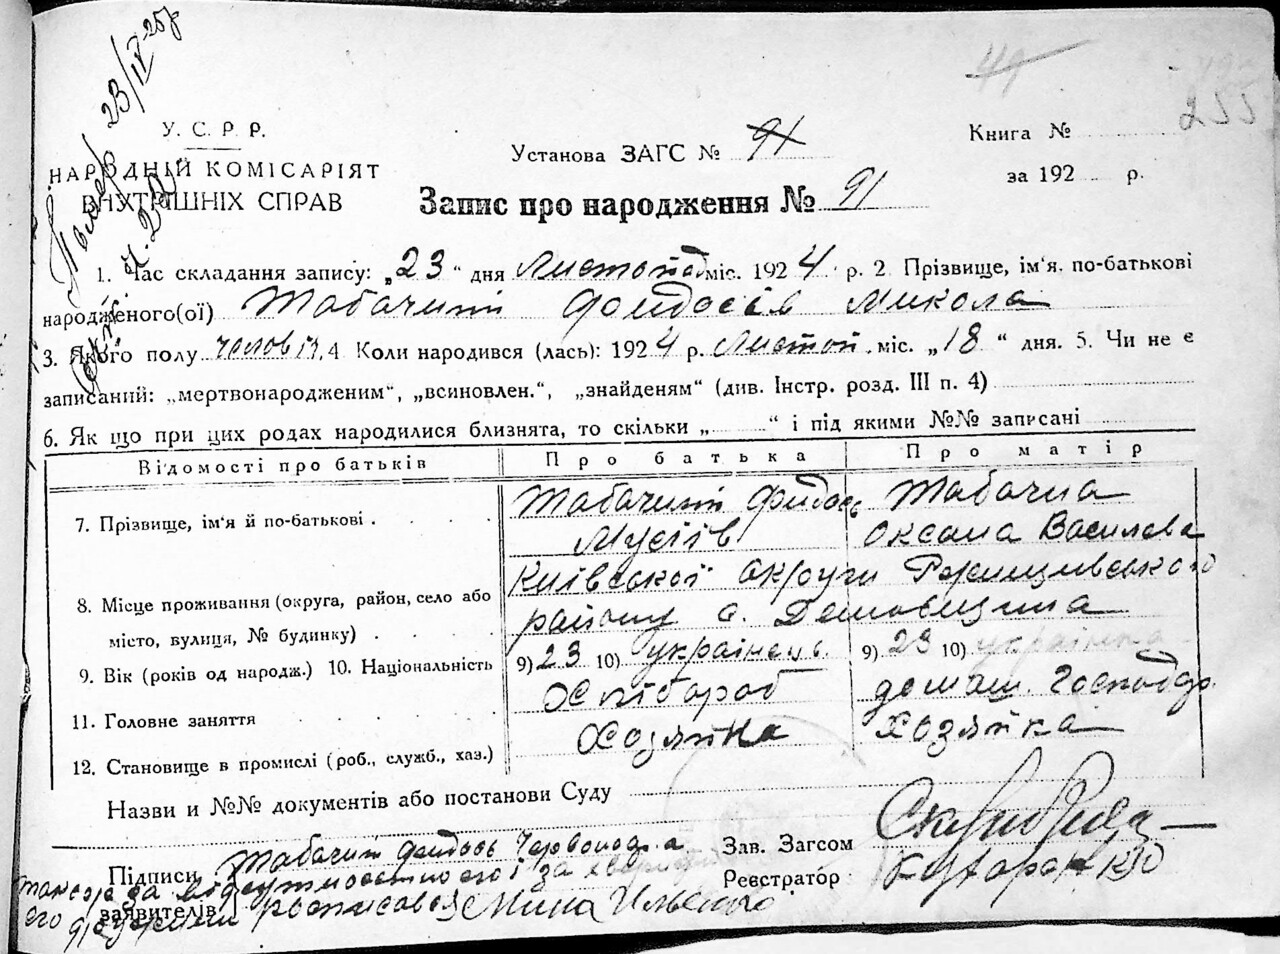 49
255
Помер 23/IV 25р
У. С. Р. Р.
НАРОДНІЙ КОМІСАРІЯТ
ВНУТРІШНІХ СПРАВ
Установа ЗАГС № 91
Книга №
за 192 р.
Запис про народження № 91
1. Час складання запису: „23“ дня Листопад міс. 1924 р. 2. Прізвище, ім'я. по-батькові
народженого(ої) Табачний Фондосів Микола
3. Якого полу чолові 4 Коли народився (лась): 1924 р. Листоп. міс. „18“ дня. 5. Чи не є
записаний: „мертвонародженим“, „всиновлен.“, „знайденям“ (див. Інстр. розд. III п. 4)
6. Як що при цих родах народилися близнята, то скільки „ “ і під якими №№ записані
Відомості про батьків Про батька Про матір
7. Прізвище, ім'я й по-батькові . Табачний Фидось Табачна
Мусіїв Оксана Василева
Київської округи Ржищівського
8. Місце проживання (округа, район, село або
місто, вулиця, № будинку) . району с.
9. Вік (років од народж.) 10. Національність 9) 23 10) українець. 9) 23 10) українка
11. Головне заняття Хлібороб домаш. Господар.
12. Становище в промислі (роб., служб., хаз.) Хозяйка
Назви и №№ документів або постанови Суду
Підписи Табачний Фондось
заявителів
його
Зав. Загсом
Реєстратор: